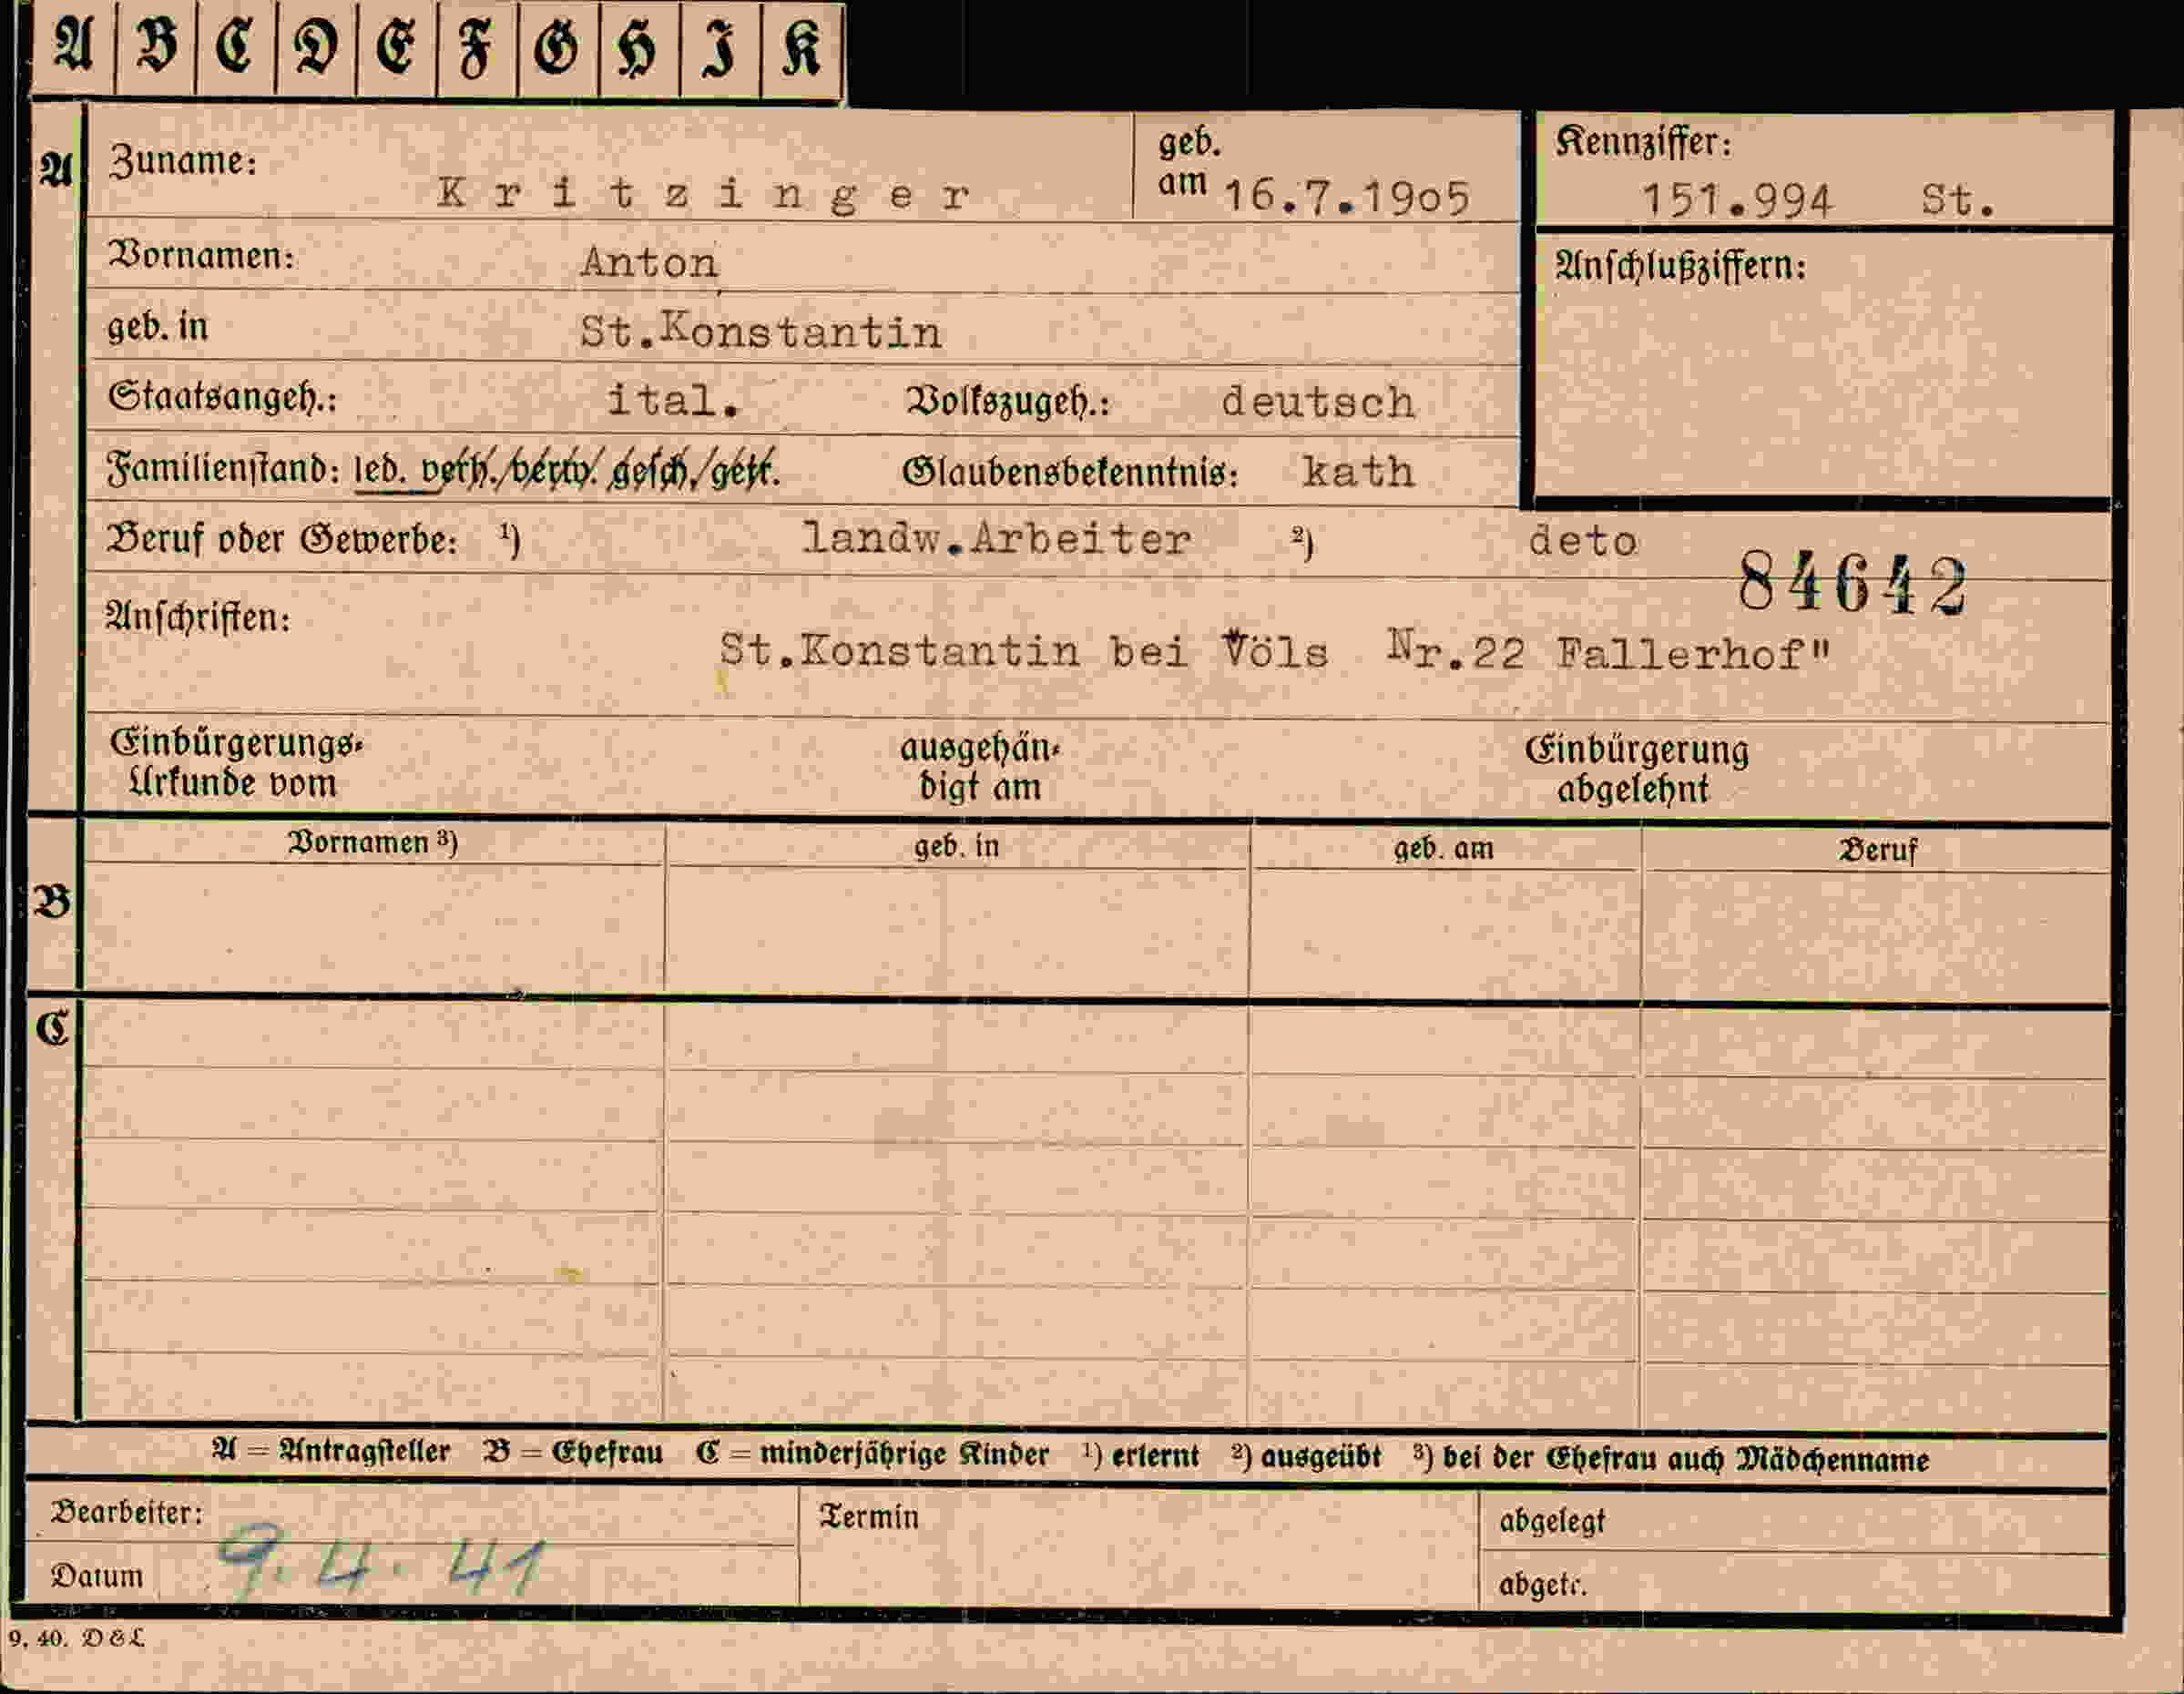 A B C D E F G H I K
A Zuname: Kritzinger geb. am 16.7.1905 Kennziffer: 151.994 St.
Vornamen: Anton Anschlußziffern:
geb. in St.Konstantin
Staatsangeh.: ital. Volkszugeh.: deutsch
Familienstand: led. verh./verw. gesch./getr. Glaubensbekenntnis: kath
Beruf oder Gewerbe: ¹) landw.Arbeiter ²) deto
84642
Anschriften: St.Konstantin bei Völs Nr.22 Fallerhof"
Einbürgerungs- ausgehän- Einbürgerung
Urkunde vom digt am abgelehnt
Vornamen ³) geb. in geb. am Beruf
B
C
A = Antragsteller B = Ehefrau C = minderjährige Kinder ¹) erlernt ²) ausgeübt ³) bei der Ehefrau auch Mädchenname
Bearbeiter: Termin abgelegt
Datum 9.4.41 abgetr.
9. 40. D & L